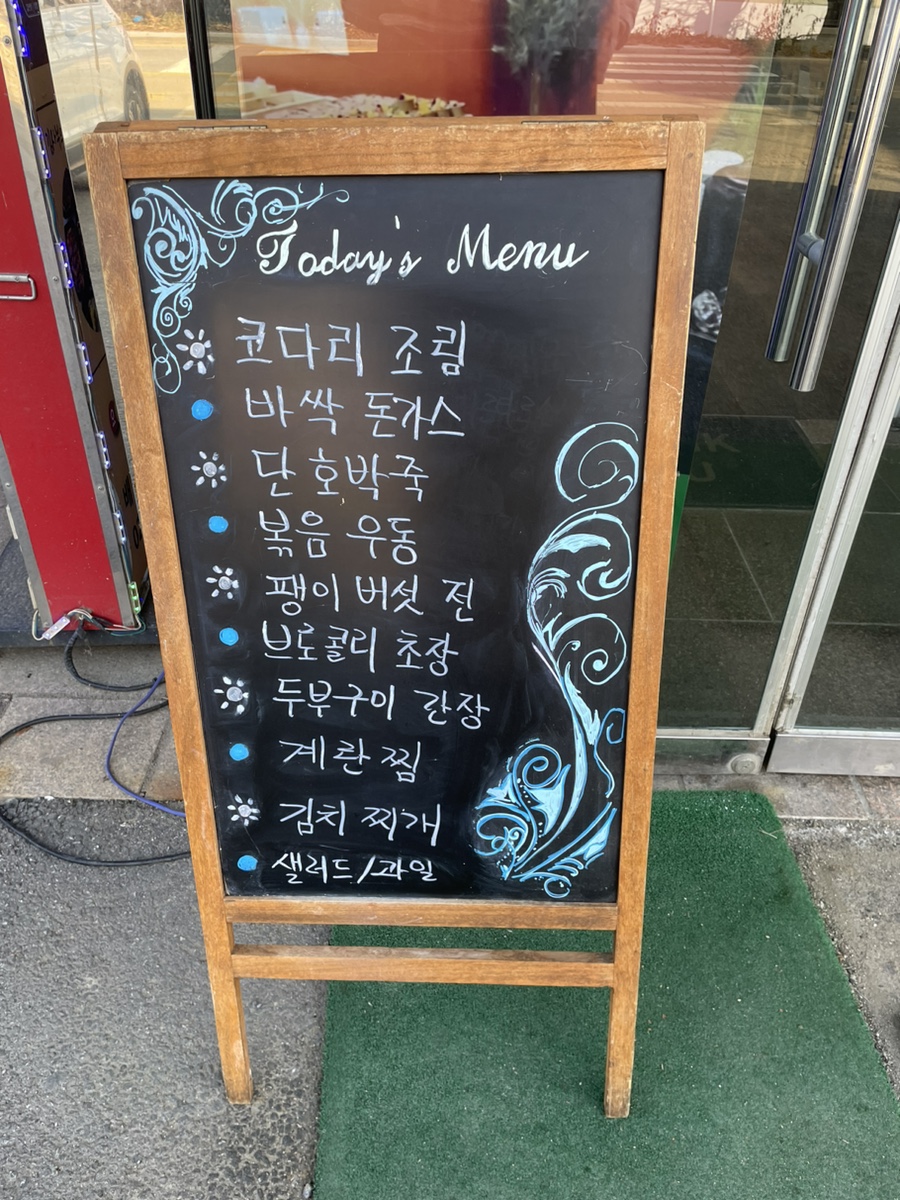 Today's Menu
코다리 조림
바싹 돈가스
단호박죽
볶음 우동
팽이 버섯 전
브로콜리 초장
두부구이 간장
계란찜
김치 찌개
샐러드/과일